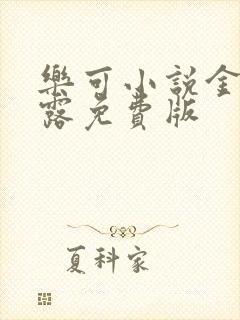 樂可小說金
露免費版
夏科家